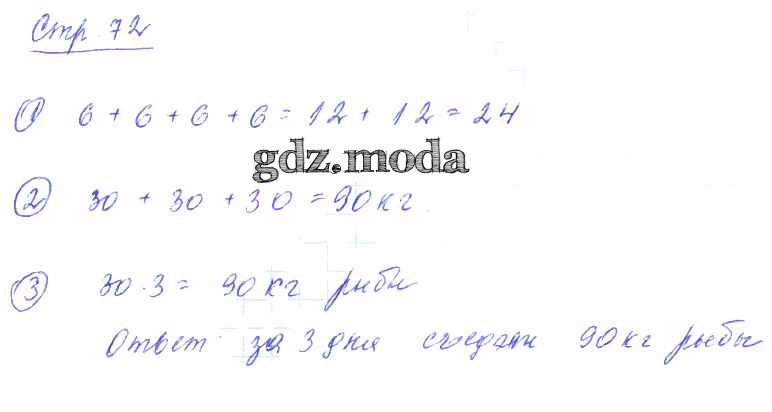 Стр. 72
1 6 + 6 + 6 + 6 = 12 + 12 = 24
gdz.moda
2 30 + 30 + 30 = 90 кг
3 30 · 3 = 90 кг рыбы
Ответ: за 3 дня съедят 90 кг рыбы